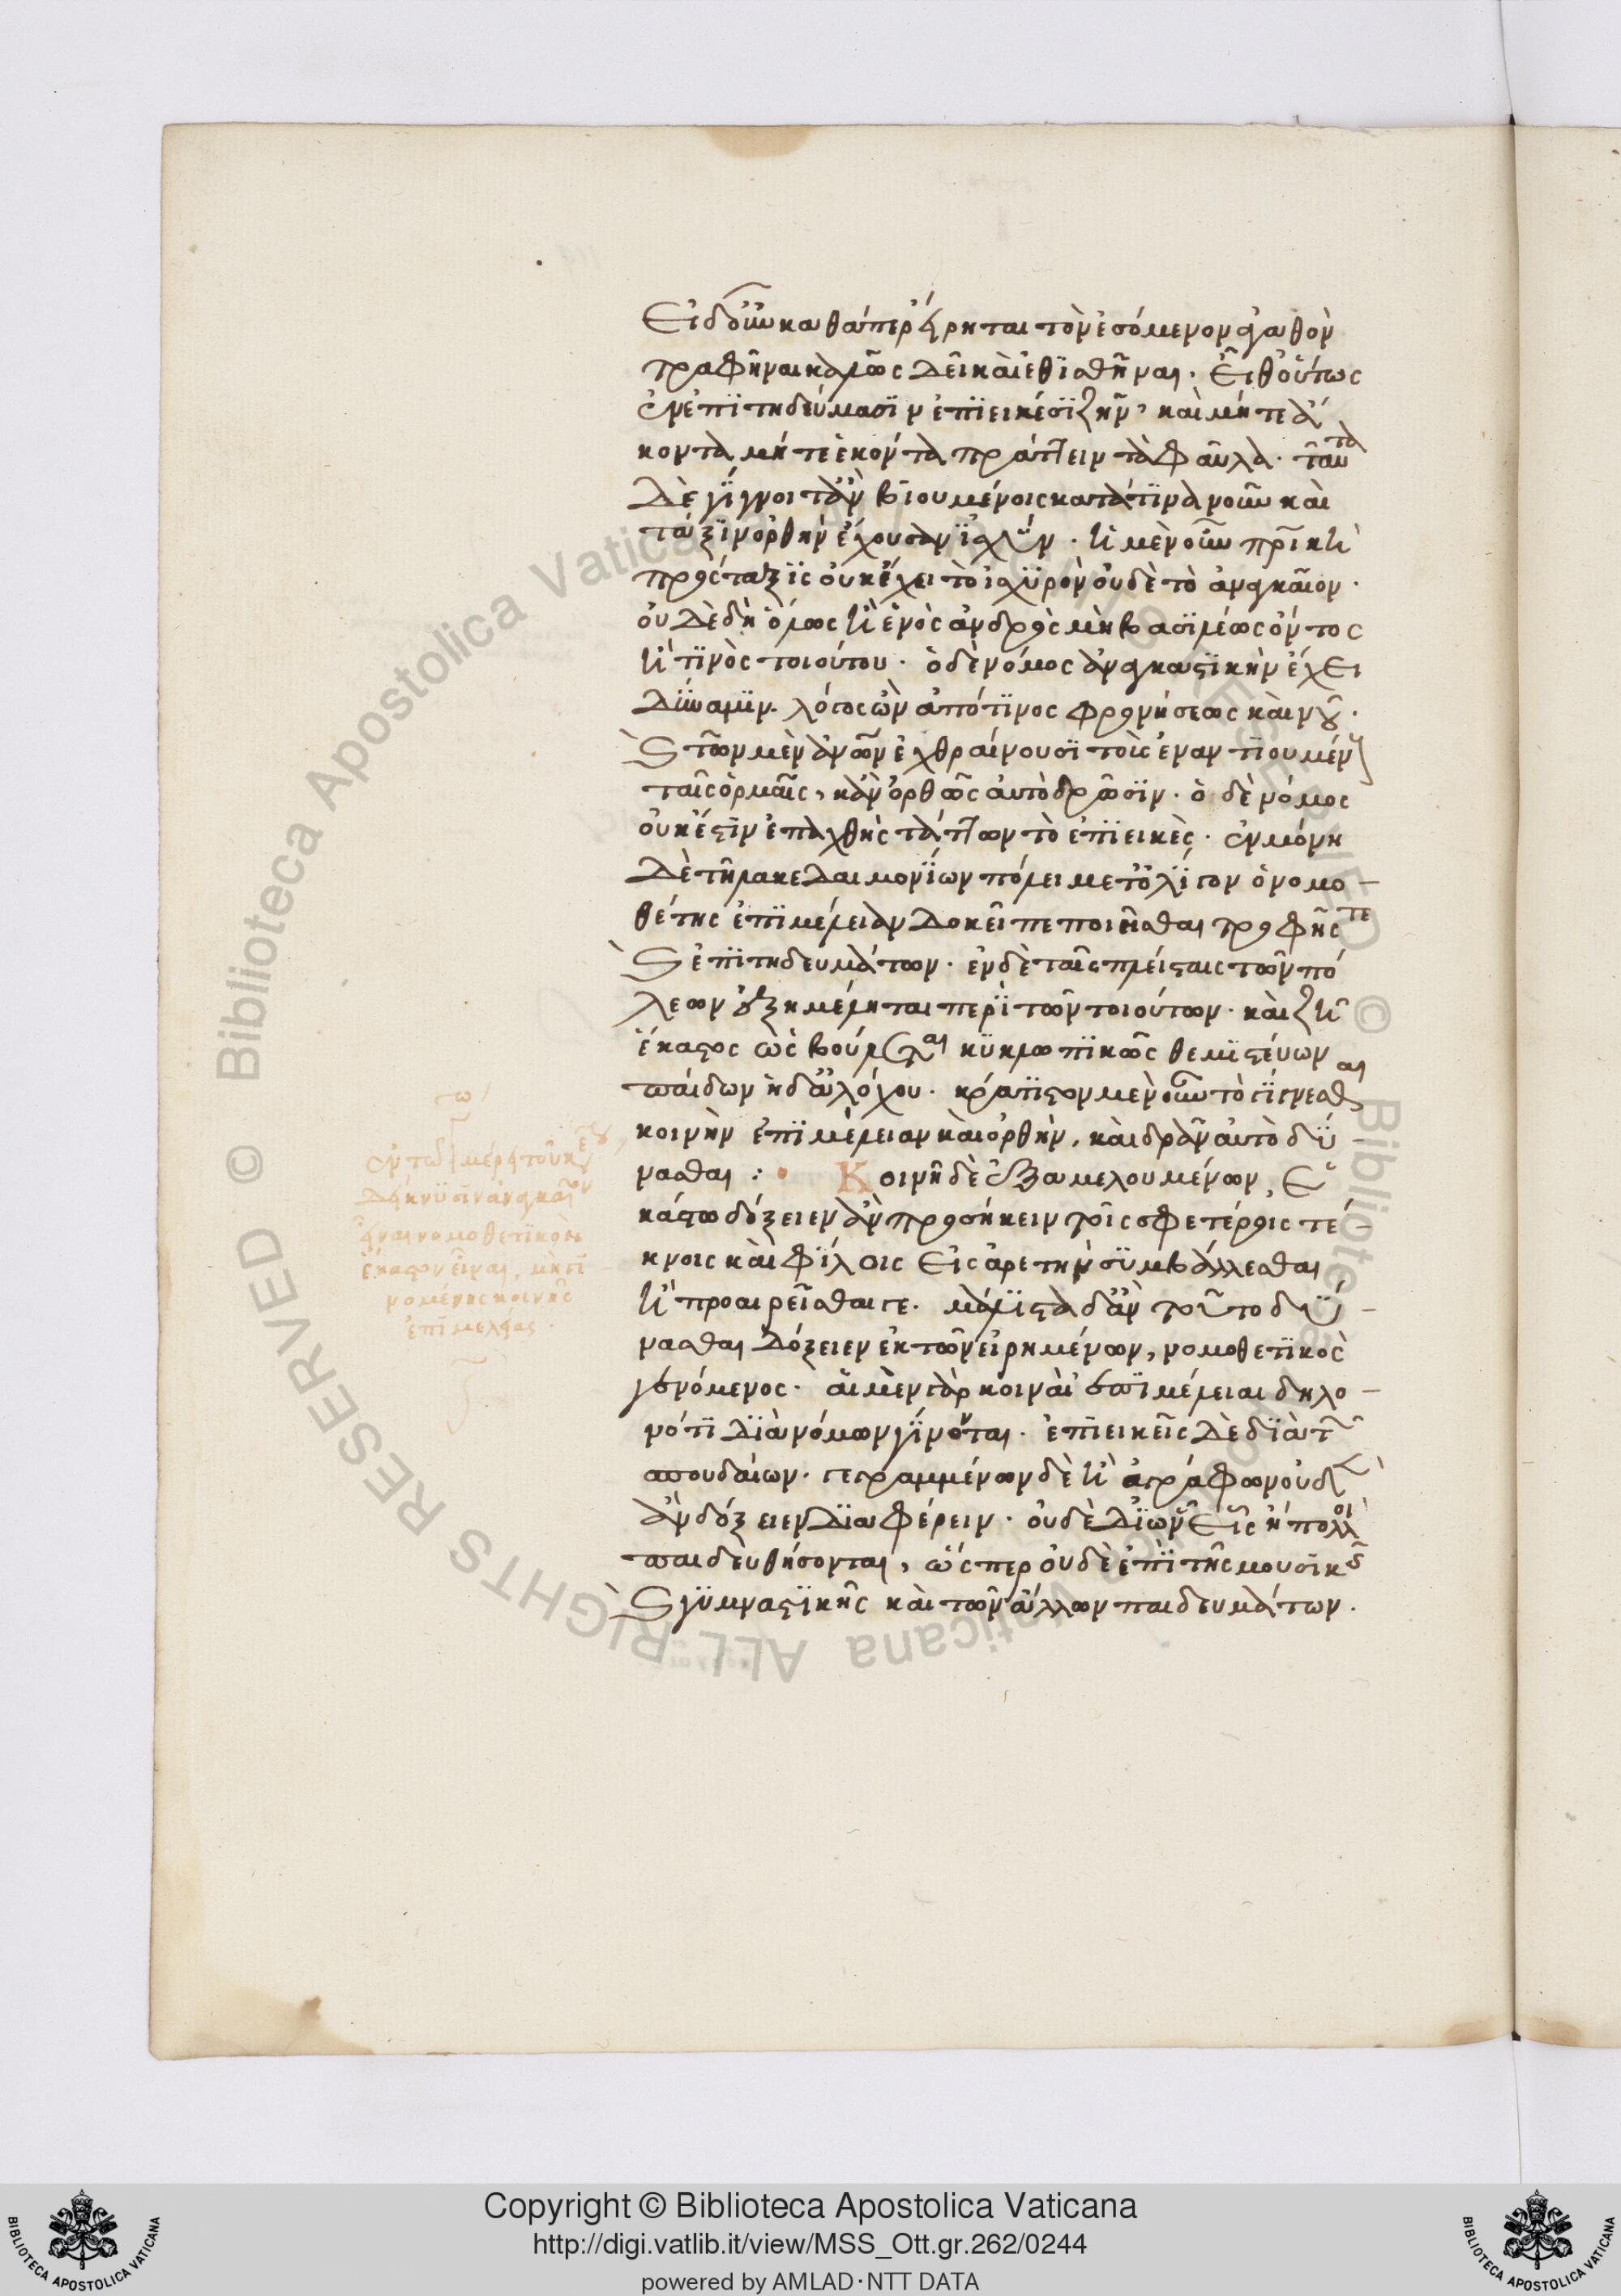 Εἰ δ' οὖν καθάπερ εἴρηται τὸν ἐσόμενον ἀγαθὸν
τραφῆναι καλῶς δεῖ καὶ ἐθισθῆναι. εἶθ' οὕτως
ἐν ἐπιτηδεύμασιν ἐπιεικέσι ζῆν, καὶ μήτε ἄ
κοντα μήτε ἑκόντα πράττειν τὰ φαῦλα. ταῦτα
δὲ γίγνοιτ' ἂν βιουμένοις κατά τινα νοῦν καὶ
τάξιν ὀρθὴν ἔχουσαν ἰσχύν. ἡ μὲν οὖν πρικὴ
πρόσταξις οὐκ ἔχει τὸ ἰσχυρὸν οὐδὲ τὸ ἀναγκαῖον.
οὐδὲ δὴ ὅλως ἡ ἑνὸς ἀνδρὸς μὴ βασιλέως ὄντος
ἤ τινος τοιούτου. ὁ δὲ νόμος ἀναγκαστικὴν ἔχει
δύναμιν. λόγος ὢν ἀπό τινος φρονήσεως καὶ νοῦ.
καὶ τῶν μὲν ἀνῶν ἐχθραίνουσι τοῖς ἐναντιουμέν
ταῖς ὁρμαῖς, κἂν ὀρθῶς αὐτὸ δρῶσιν. ὁ δὲ νόμος
οὐκ ἔστιν ἐπαχθὴς τάττων τὸ ἐπιεικὲς. ἐν μόνη
δὲ τῆ λακεδαιμονίων πόλει μετ' ὀλίγων ὁ νομο-
θέτης ἐπιμέλειαν δοκεῖ πεποιεῖσθαι τροφῆς τε
καὶ ἐπιτηδευμάτων. ἐν δὲ ταῖς πλείσταις τῶν πό
λεων ἐξημέληται περὶ τῶν τοιούτων. καὶ ζῆ
ἕκαστος ὡς βούλεται κυκλωπικῶς θεμιστεύων
παίδων ἠδ' ἀλόχου. κράτιστον μὲν οὖν τὸ γίγνεσθαι
κοινὴν ἐπιμέλειαν καὶ ὀρθὴν, καὶ δρᾶν αὐτὸ δύ-
νασθαι: Κοινῆ δὲ ἐξαμελουμένων, ἑ
κάστω δόξειεν ἂν προσήκειν τοῖς σφετέροις τέ-
κνοις καὶ φίλοις εἰς ἀρετὴν συμβάλλεσθαι
ἢ προαιρεῖσθαί γε. μάλιστα δ' ἂν τοῦτο δύ-
νασθαι δόξειεν ἐκ τῶν εἰρημένων, νομοθετικὸς
γενόμενος. αἱ μὲν γὰρ κοιναὶ ἐπιμέλειαι δηλο-
νότι διὰ νόμων γίνονται. ἐπιεικεῖς δὲ διὰ τῶν
σπουδαίων. γεγραμμένων δὲ ἢ ἀγράφων οὐδὲν
ἂν δόξειεν διαφέρειν. οὐδὲ δι' ὧν εἷς ἢ πολλοὶ
παιδευθήσονται, ὥσπερ οὐδὲ ἐπὶ τῆς μουσικῆς
καὶ γυμναστικῆς καὶ τῶν ἄλλων παιδευμάτων.
δείκνυσιν ἀναγκαῖον
εἶναι νομοθετικὸν
ἕκαστον εἶναι, μὴ γι
νομένης κοινῆς
ἐπιμελείας.
© Biblioteca Apostolica Vaticana ALL RIGHTS RESERVED
Copyright © Biblioteca Apostolica Vaticana
http://digi.vatlib.it/view/MSS_Ott.gr.262/0244
powered by AMLAD·NTT DATA
BIBLIOTECA APOSTOLICA VATICANA
BIBLIOTECA APOSTOLICA VATICANA